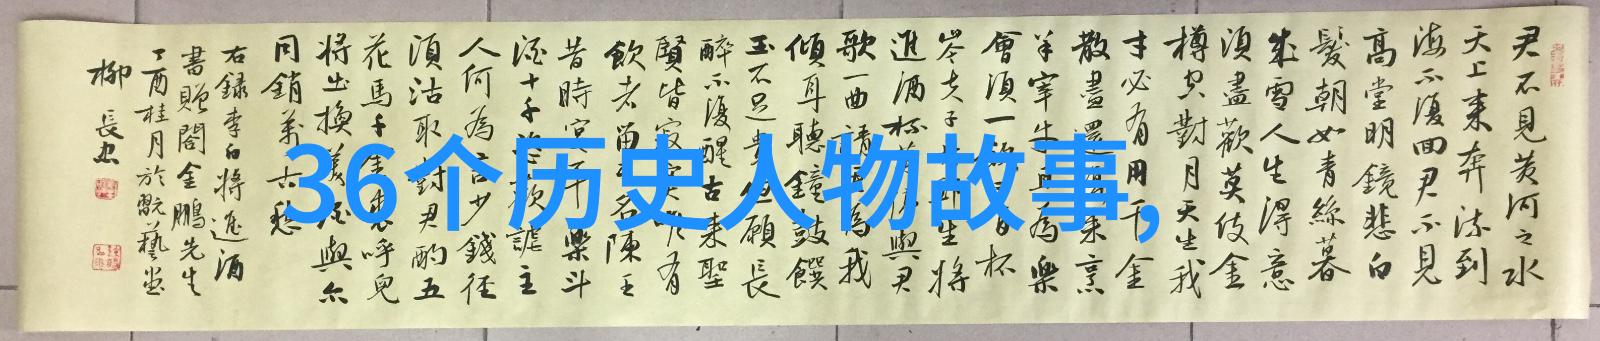 36个历史人物故事,
君不見黄河之水
天上来奔流到
海不復回君不見
高堂明鏡悲白
髮朝如青絲暮
成雪人生得意
須盡歡莫使金
樽空對月天生我
才必有用千金
散盡還復来烹
羊宰牛且為樂
會須一百杯
岑夫子丹丘生將
進酒杯莫停與君
歌一曲請君為我
傾耳聽鐘鼓饌
玉不足貴但願長
醉不復醒古来聖
賢皆寂寞惟有
飲者留名陳王
昔時宴平樂斗
酒十千恣歡謔主
人何為言少錢徑
須沽取對君酌五
花馬千金裘呼兒
將出換美酒與尔
同銷萬古愁
右録李白將進酒
書贈閻金鵬先生
丁酉桂月於翫藝堂
柳長忠